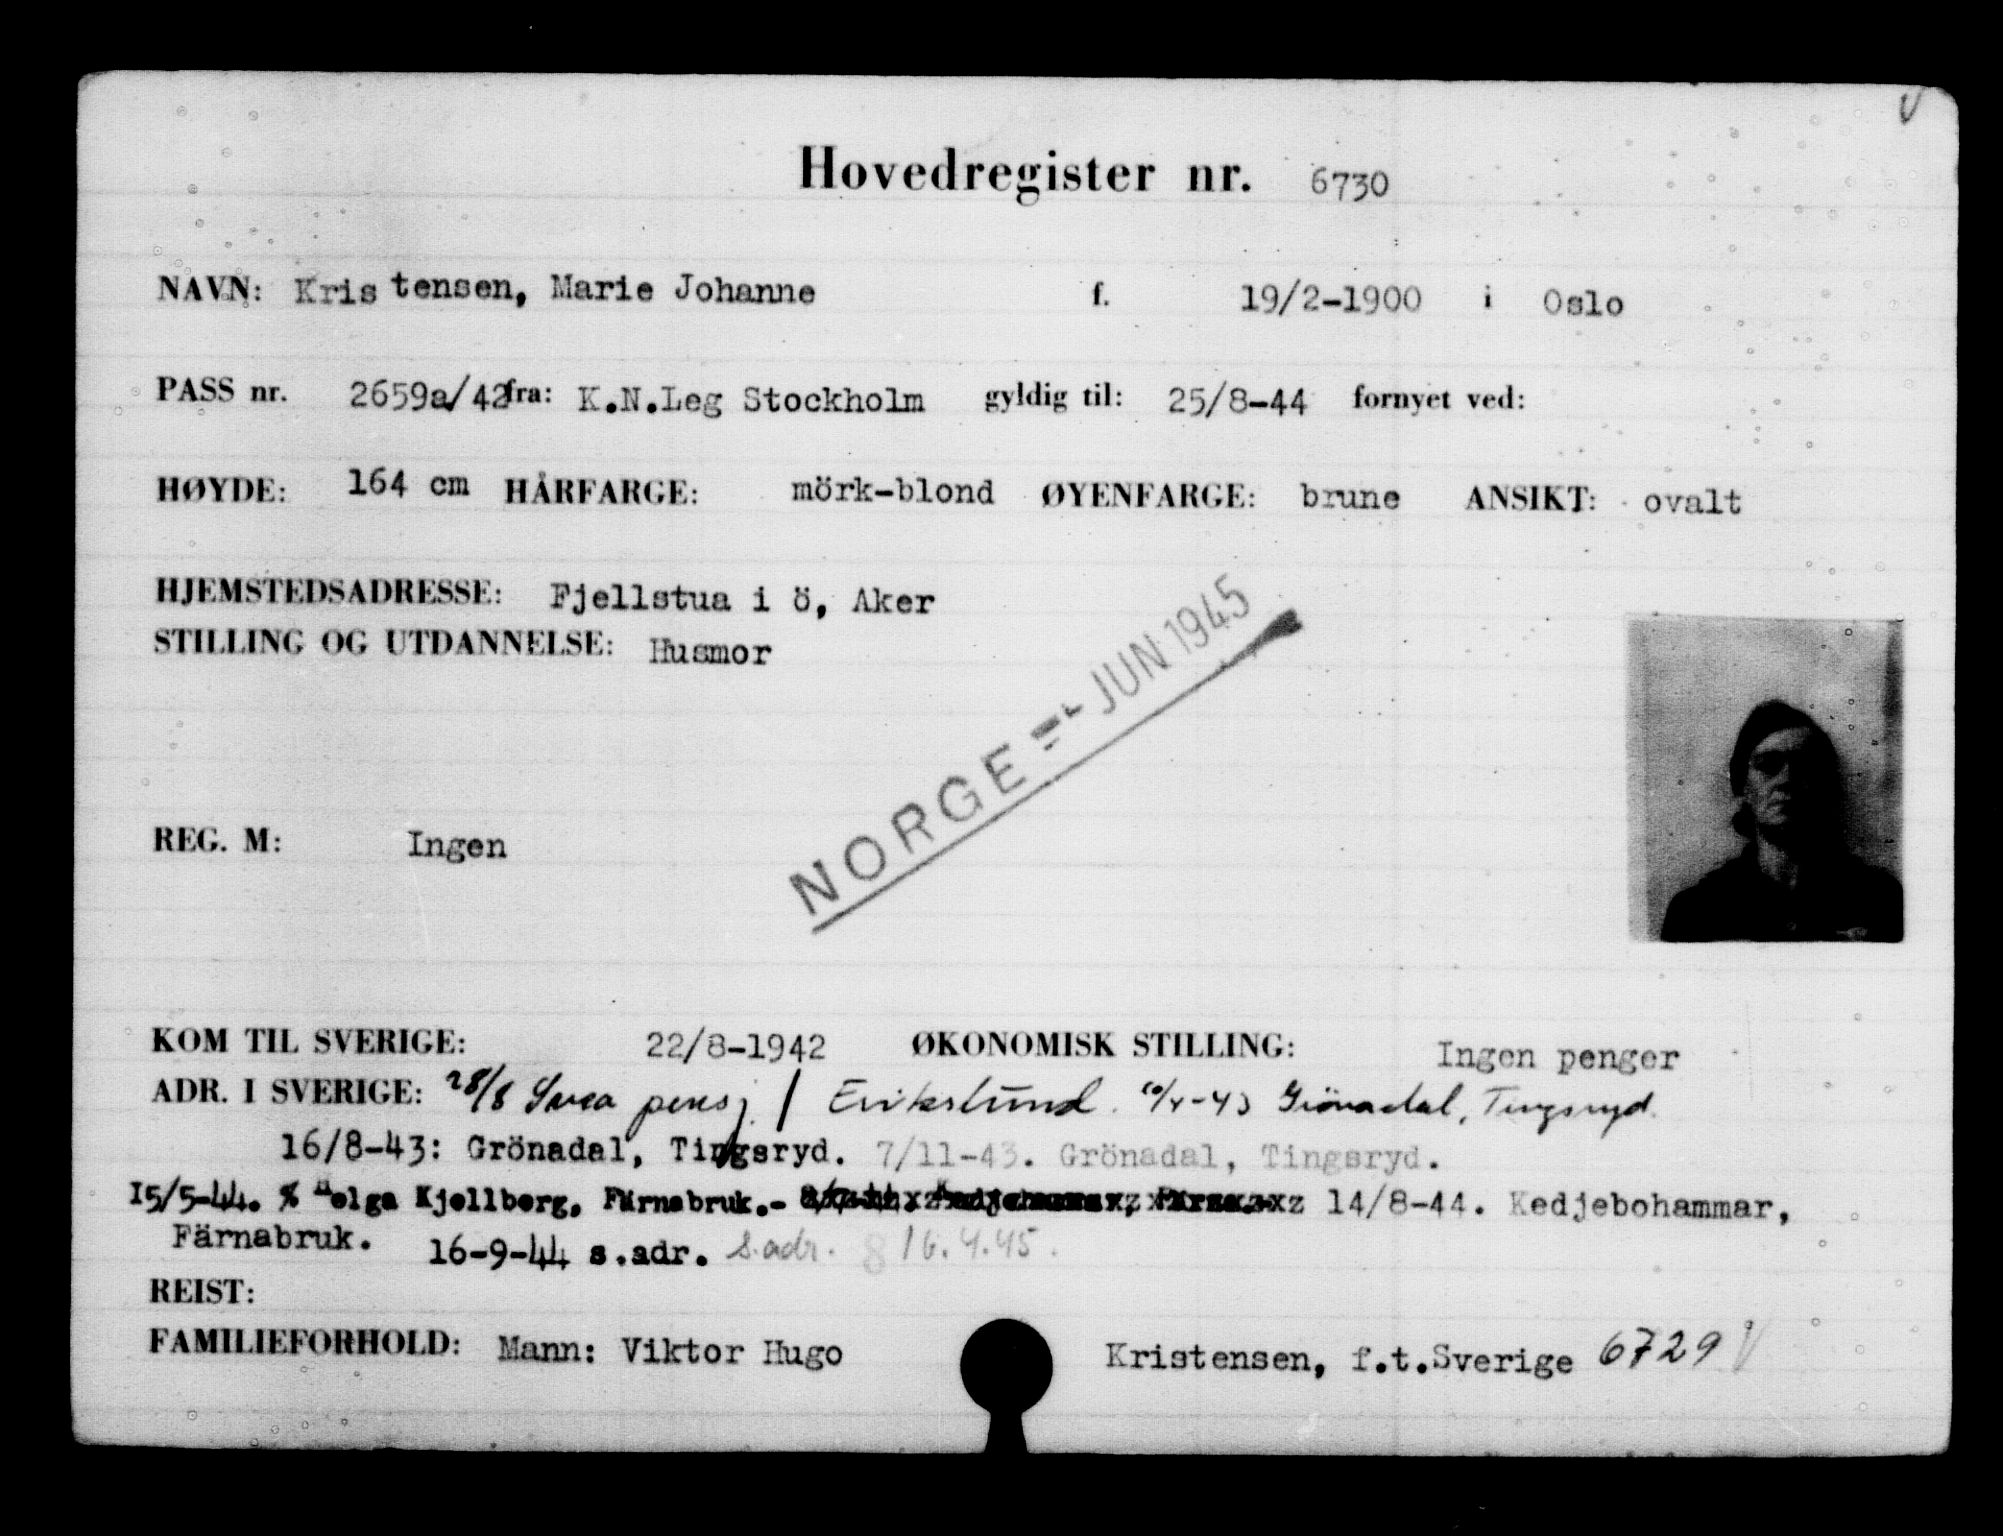 Hovedregister nr. 6730
NAVN: Kristensen, Marie Johanne f. 19/2-1900 i Oslo
PASS nr. 2659a/42 fra: K.N.Leg Stockholm gyldig til: 25/8-44 fornyet ved:
HØYDE: 164 cm HÅRFARGE: mörk-blond ØYENFARGE: brune ANSIKT: ovalt
HJEMSTEDSADRESSE: Fjellstua i ö, Aker
STILLING OG UTDANNELSE: Husmor
NORGE JUN 1945
REG. M: Ingen
KOM TIL SVERIGE: 22/8-1942 ØKONOMISK STILLING: Ingen penger
ADR. I SVERIGE: 28/8 Svea pensj. / Erikslund. Grönadal, Tingsryd.
16/8-43: Grönadal, Tingsryd. 7/11-43. Grönadal, Tingsryd.
15/5-44. % Helga Kjellberg, Färnabruk.- 14/8-44. Kedjebohammar,
Färnabruk. 16-9-44 s.adr. s.adr. 16.4.45.
REIST:
FAMILIEFORHOLD: Mann: Viktor Hugo Kristensen, f.t.Sverige 6729